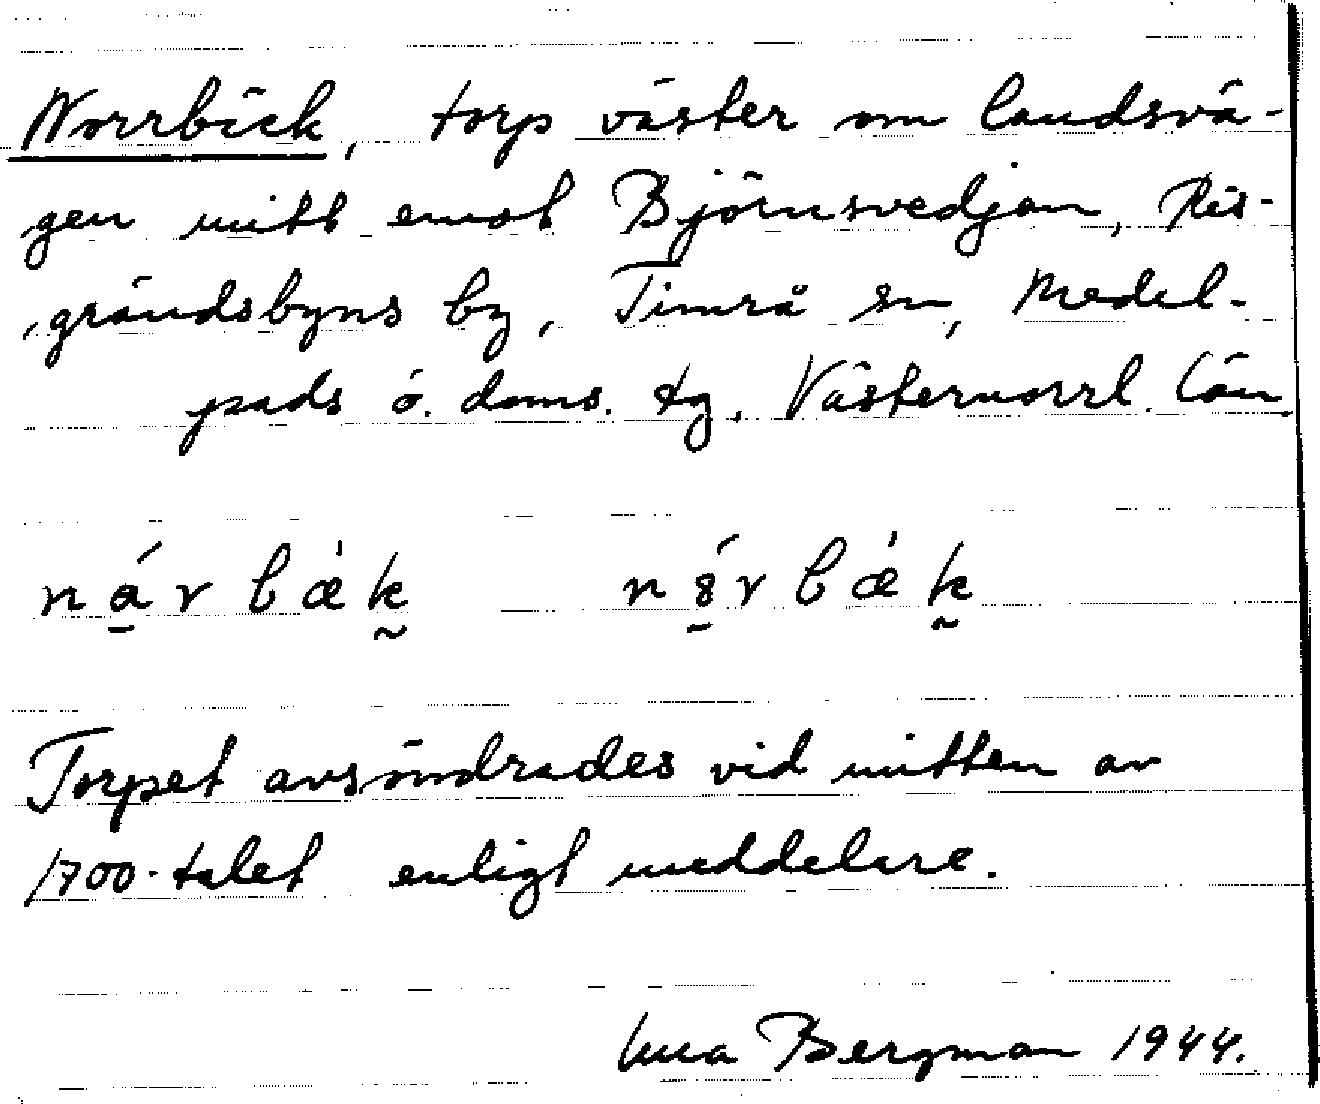 Norrbäck, torp väster om landsvä-
gen mitt emot Björnsvedjan, Ris-
grändsbyns by, Timrå sn, Medel-
pads ö. doms. tg. Västernorrl. län.
nárbæ̀k nǿrbæ̀k
Torpet avsöndrades vid mitten av
1700-talet enligt meddelare.
Bergman 1944.